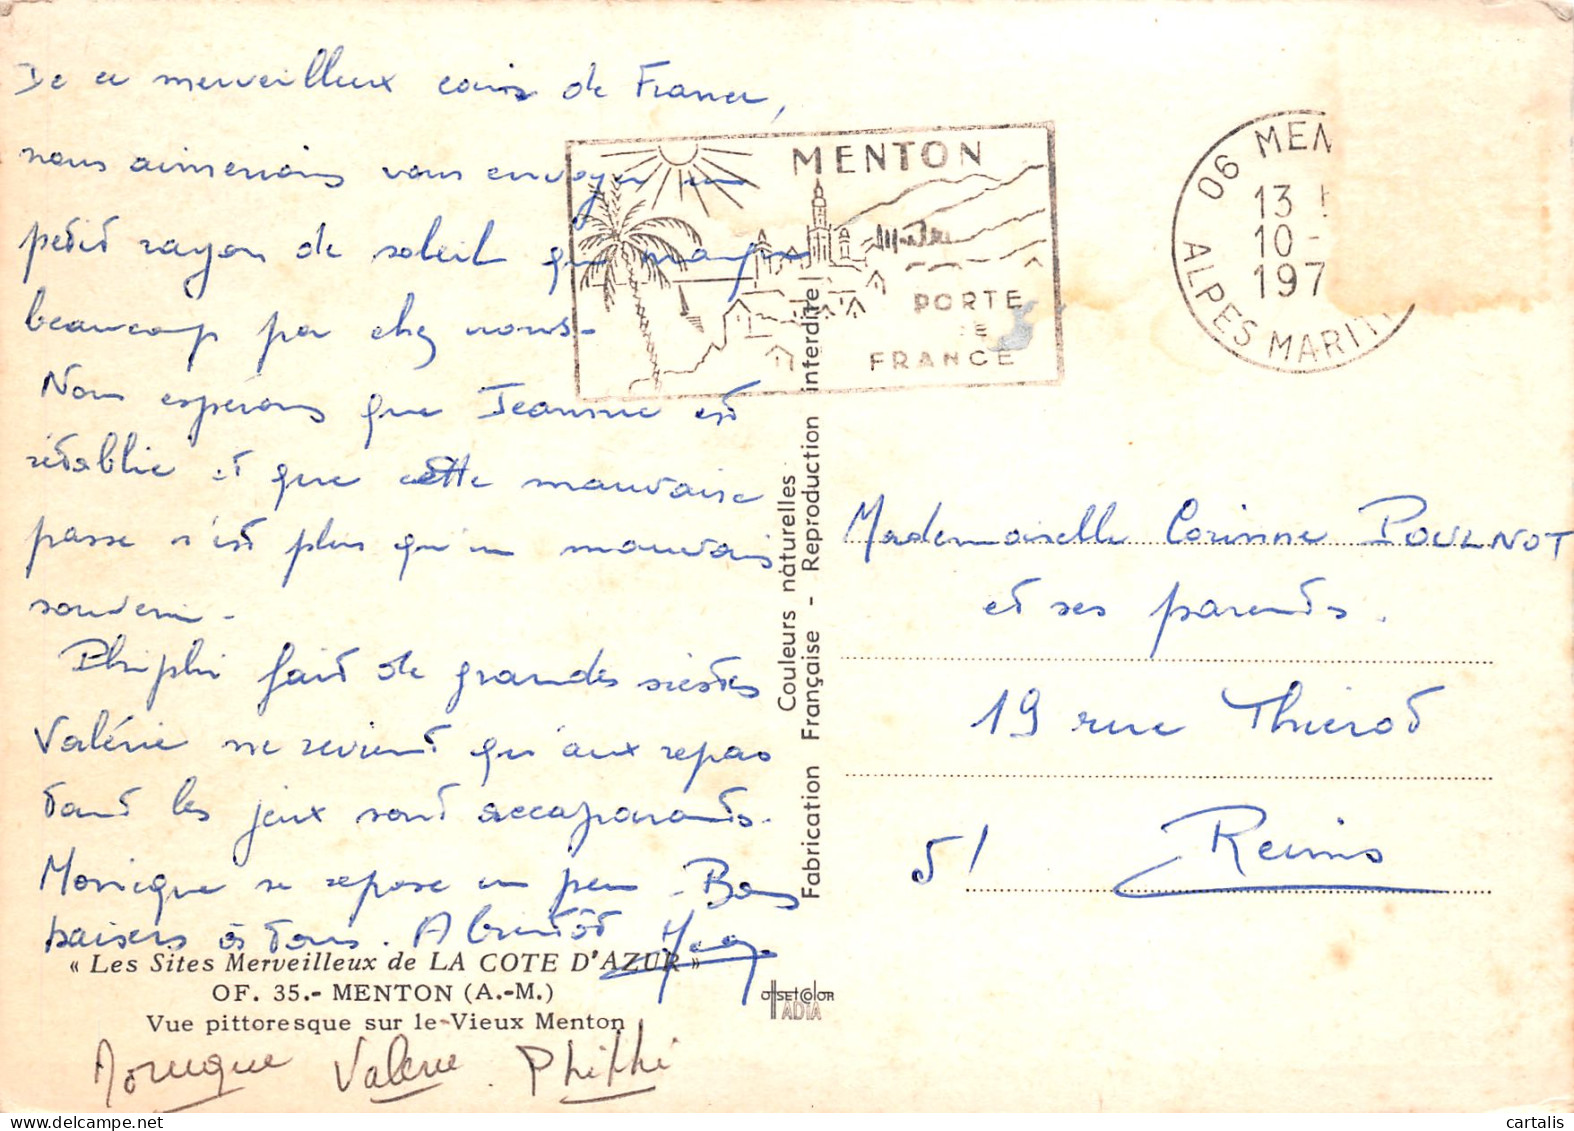 De ce merveilleux coin de France,
nous aimerions vous envoyer un
petit rayon de soleil qui manque
beaucoup par chez nous.
Nous espérons que Jeanne est
rétablie et que cette mauvaise
passe n'est plus qu'un mauvais
souvenir.
Phiphi fait de grandes siestes
Valérie ne revient qu'aux repas
tant les jeux sont accaparants.
Monique se repose un peu. Bons
baisers à tous. A bientôt
« Les Sites Merveilleux de LA COTE D'AZUR »
OF. 35.- MENTON (A.-M.)
Vue pittoresque sur le Vieux Menton
Monique Valérie Phiphi
MENTON
PORTE
DE
FRANCE
06 MEN
13
10 -
197
ALPES MARITI
Couleurs naturelles
Fabrication Française - Reproduction interdite
OffSETCOLOR
ADIA
Mademoiselle Corinne POULNOT
et ses parents.
19 rue Thierot
51 Reims
cartalis